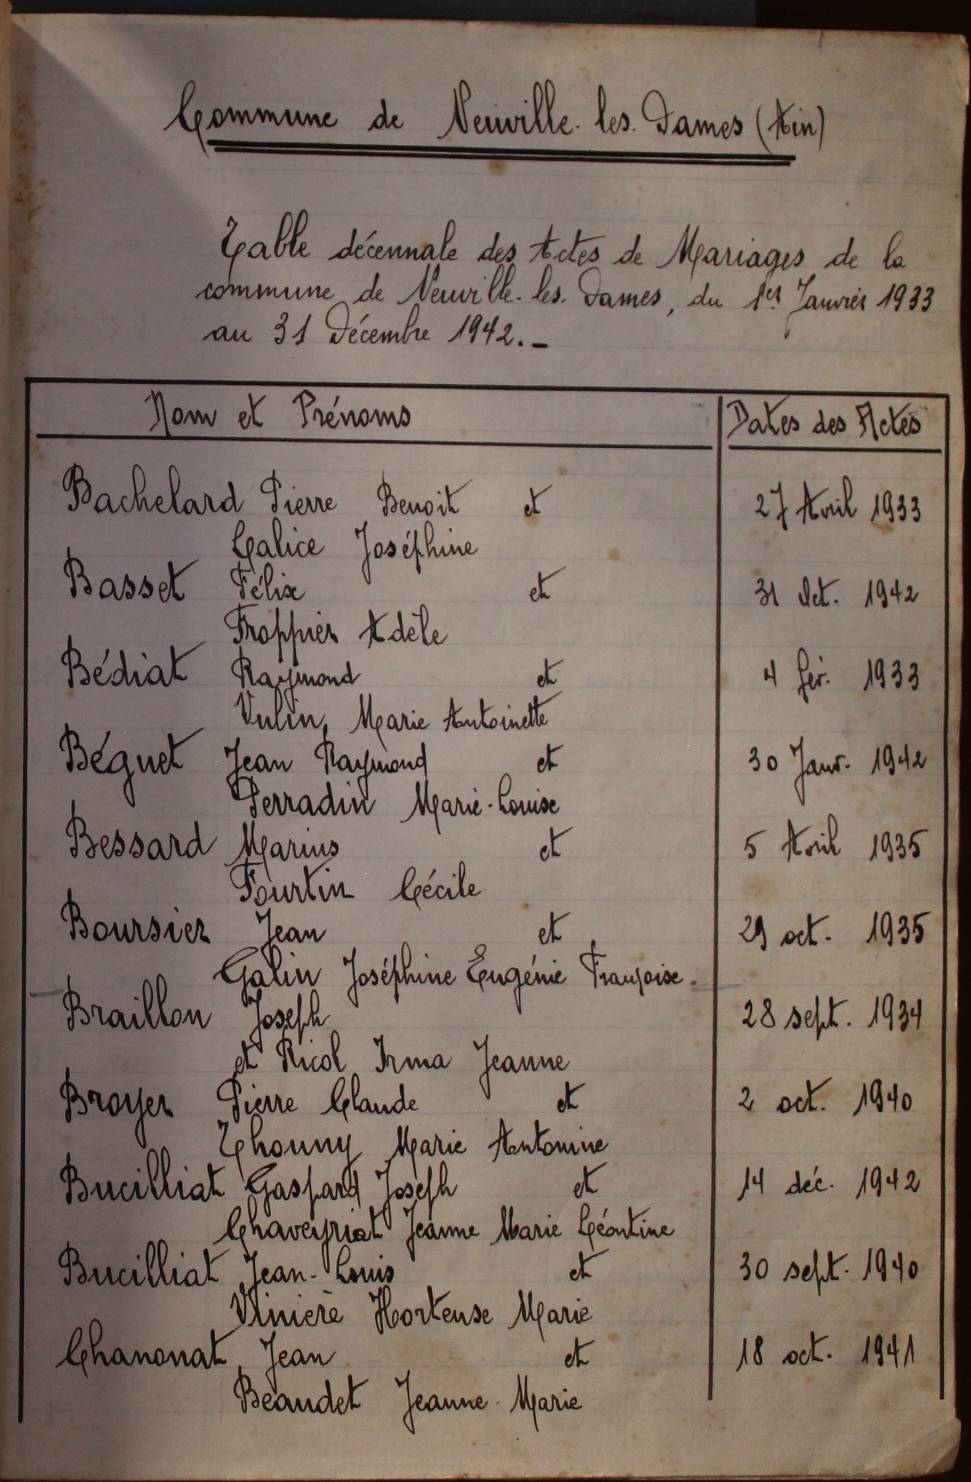 Commune de Neuville-les-Dames (Ain)
Table décennale des Actes de Mariages de la
commune de Neuville-les-Dames, du 1er Janvier 1933
au 31 Décembre 1942.-
Nom et Prénoms Dates des Actes
Bachelard Pierre Benoit et 27 Avril 1933
Galice Joséphine
Basset Félix et 31 Oct. 1942
Froppier Adèle
Bédiat Raymond et 4 fév. 1933
Vulin, Marie Antoinette
Béguet Jean Raymond et 30 Janv. 1942
Perradin Marie-Louise
Bessard Marius et 5 Avril 1935
Fourtin Cécile
Boursier Jean et 29 oct. 1935
Galin Joséphine Eugénie Françoise.
Braillon Joseph 28 sept. 1934
et Ricol Irma Jeanne
Broyer Pierre Claude et 2 oct. 1940
Thouny Marie Antonine
Bucilliat Gaspard Joseph et 14 déc. 1942
Chaveyriat Jeanne Marie Léontine
Bucilliat Jean-Louis et 30 sept. 1940
Vinière Hortense Marie
Chanonat Jean et 18 oct. 1941
Beaudet Jeanne-Marie